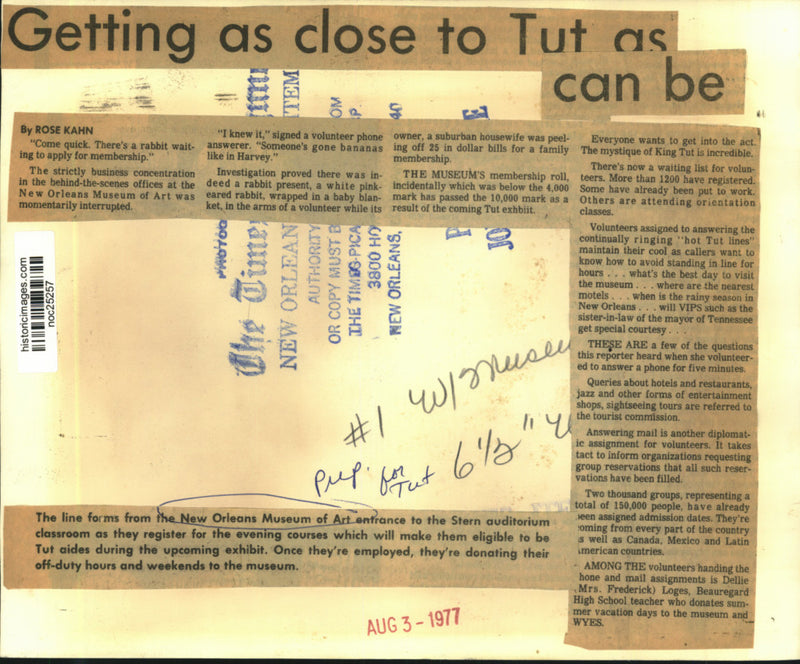 Getting as close to Tut as
can be
By ROSE KAHN
"Come quick. There's a rabbit wait-
ing to apply for membership."
The strictly business concentration
in the behind-the-scenes offices at the
New Orleans Museum of Art was
momentarily interrupted.
"I knew it," signed a volunteer phone
answerer. "Someone's gone bananas
like in Harvey."
Investigation proved there was in-
deed a rabbit present, a white pink-
eared rabbit, wrapped in a baby blan-
ket, in the arms of a volunteer while its
owner, a suburban housewife was peel-
ing off 25 in dollar bills for a family
membership.
THE MUSEUM'S membership roll,
incidentally which was below the 4,000
mark has passed the 10,000 mark as a
result of the coming Tut exhbiit.
Everyone wants to get into the act.
The mystique of King Tut is incredible.
There's now a waiting list for volun-
teers. More than 1200 have registered.
Some have already been put to work.
Others are attending orientation
classes.
Volunteers assigned to answering the
continually ringing "hot Tut lines"
maintain their cool as callers want to
know how to avoid standing in line for
hours . . . what's the best day to visit
the museum . . . where are the nearest
motels . . . when is the rainy season in
New Orleans . . . will VIPS such as the
sister-in-law of the mayor of Tennessee
get special courtesy . . .
THESE ARE a few of the questions
this reporter heard when she volunteer-
ed to answer a phone for five minutes.
Queries about hotels and restaurants,
jazz and other forms of entertainment
shops, sightseeing tours are referred to
the tourist commission.
Answering mail is another diplomat-
ic assignment for volunteers. It takes
tact to inform organizations requesting
group reservations that all such reser-
vations have been filled.
Two thousand groups, representing a
total of 150,000 people, have already
been assigned admission dates. They're
oming from every part of the country
s well as Canada, Mexico and Latin
merican countries.
AMONG THE volunteers handing the
hone and mail assignments is Dellie
Mrs. Frederick) Loges, Beauregard
High School teacher who donates sum-
mer vacation days to the museum and
WYES.
historicimages.com
noc25257
The Times
NEW ORLEAN
AUTHORITY
OR COPY MUST B
THE TIMES-PICA
3800 HO
NEW ORLEANS,
ITEM
OM
P
40
#1 W/Museu
6 1/2"
Prep. for
Tut
The line forms from the New Orleans Museum of Art entrance to the Stern auditorium
classroom as they register for the evening courses which will make them eligible to be
Tut aides during the upcoming exhibit. Once they're employed, they're donating their
off-duty hours and weekends to the museum.
AUG 3 - 1977